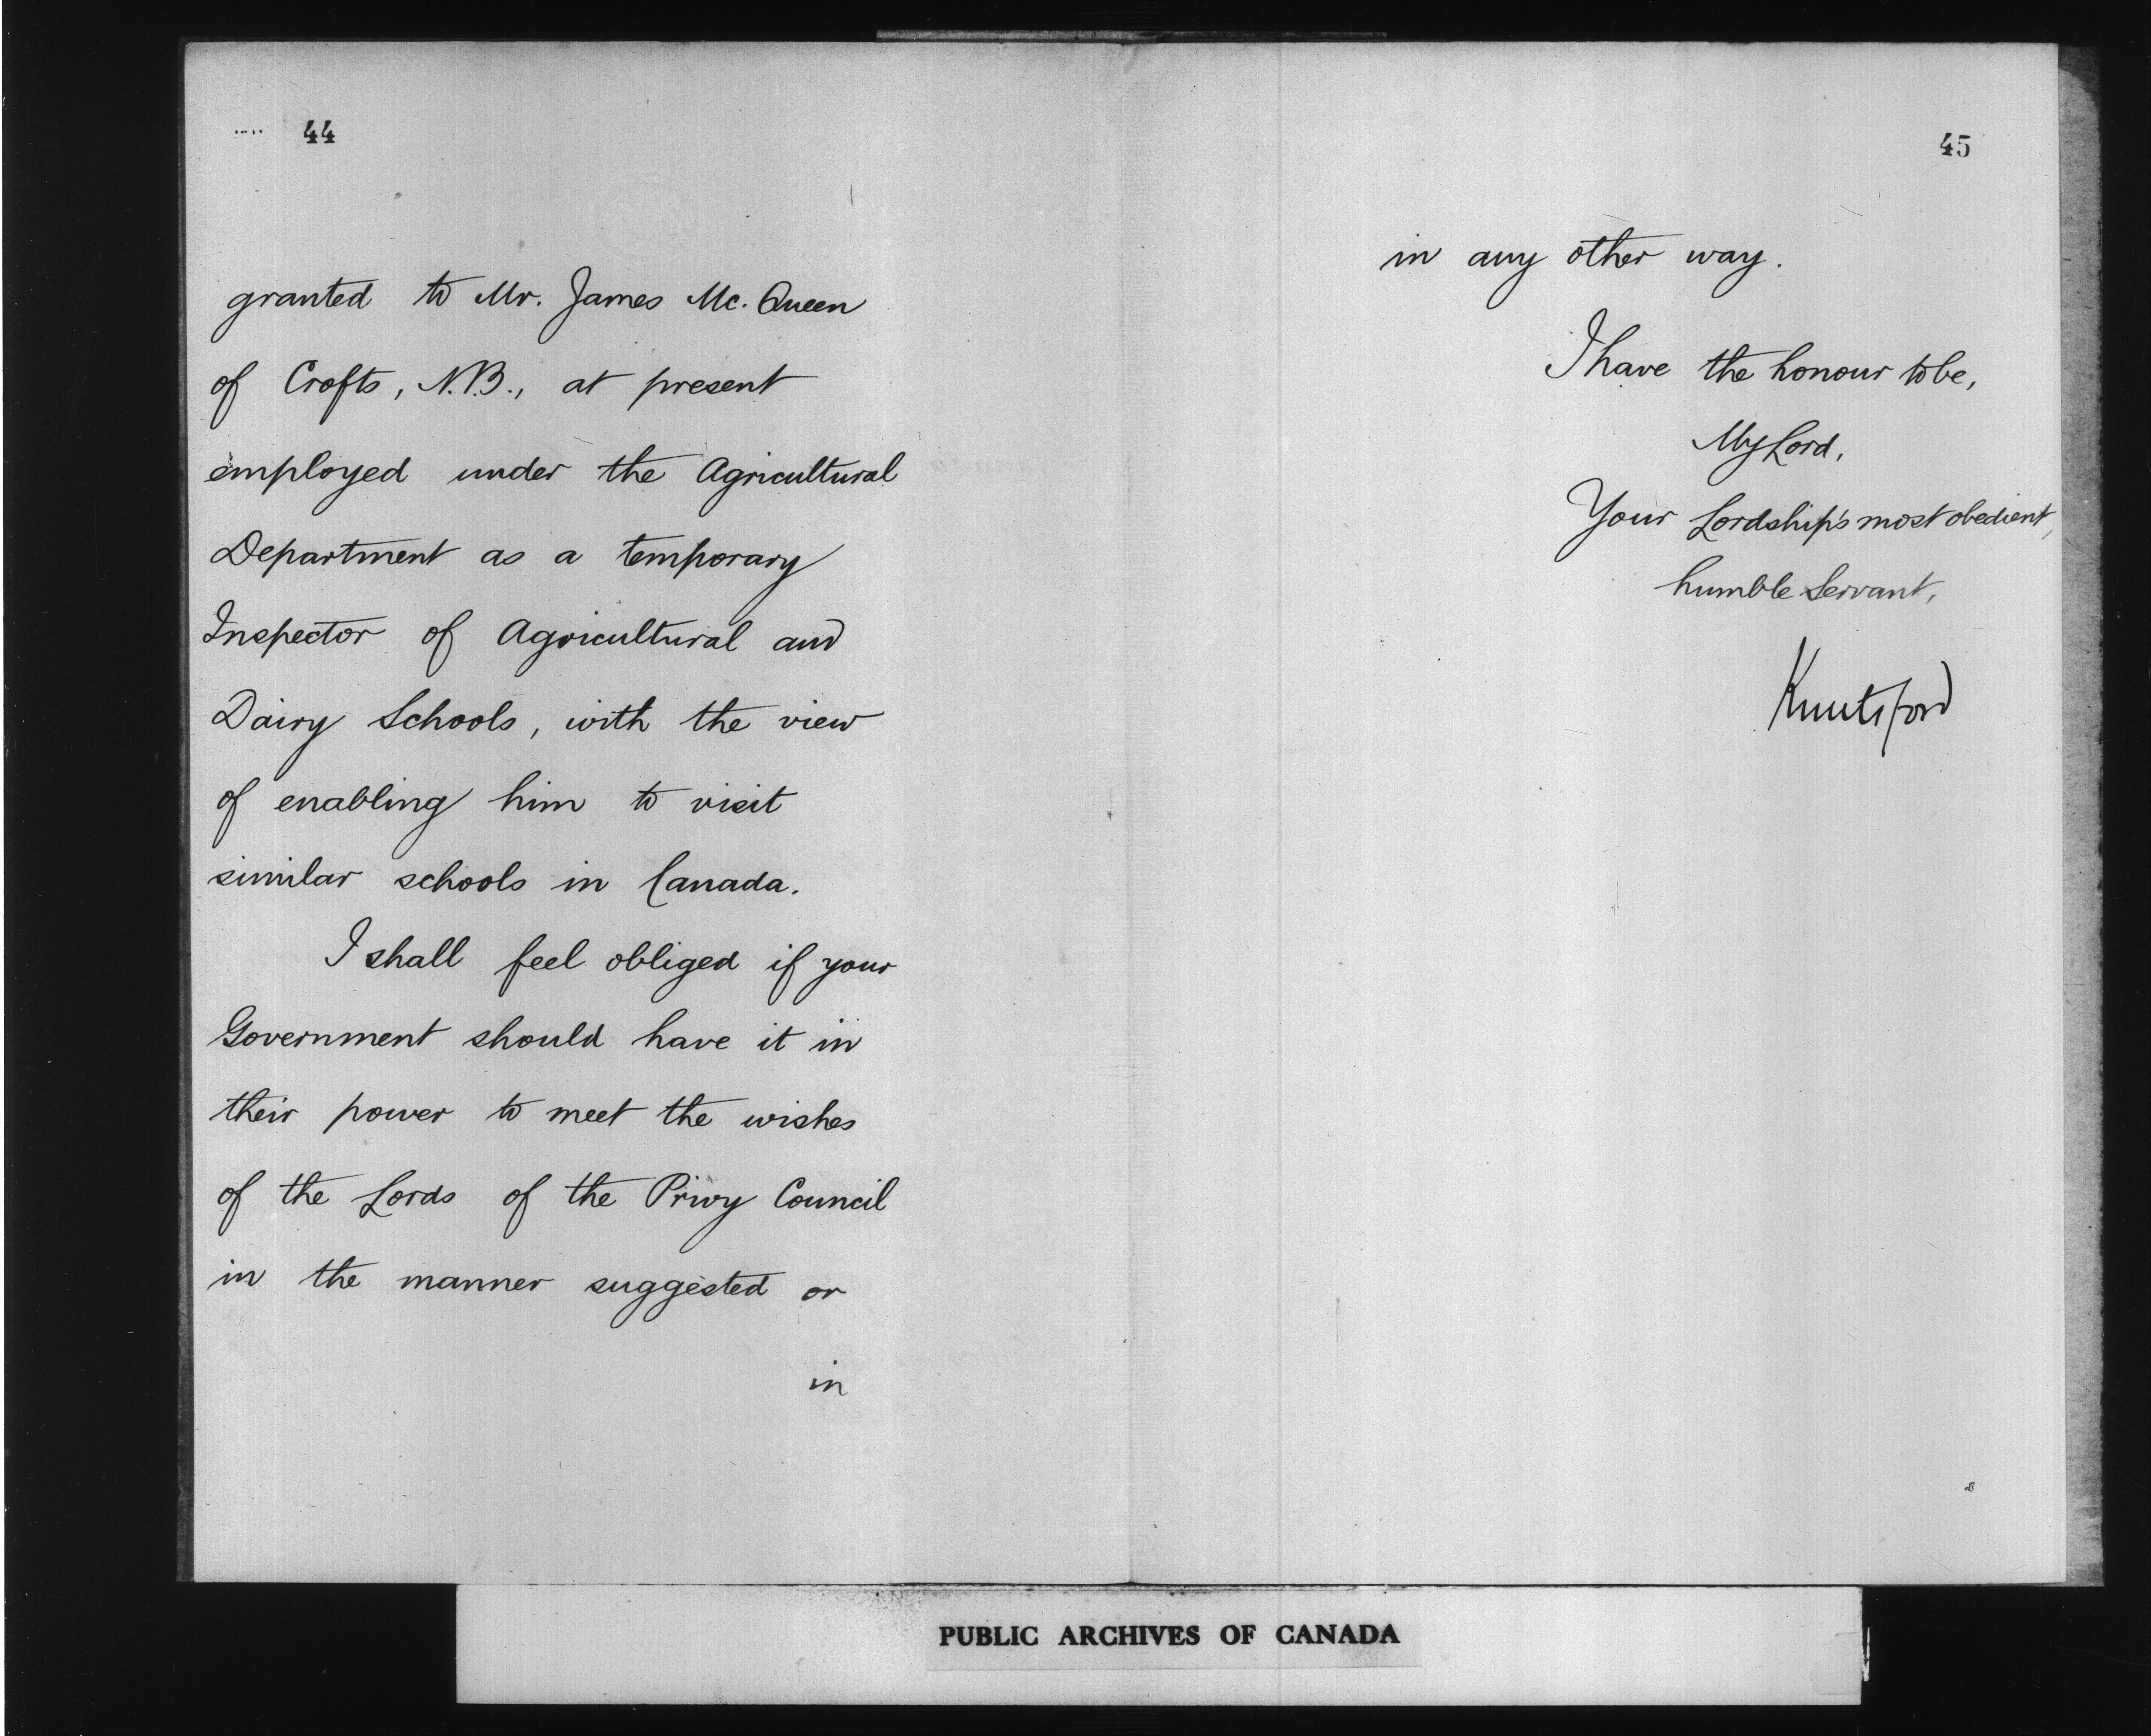 44
granted to Mr. James Mc. Queen
of Crofts, N.B., at present
employed under the Agricultural
Department as a temporary
Inspector of Agricultural and
Dairy Schools, with the view
of enabling him to visit
similar schools in Canada.
I shall feel obliged if your
Government should have it in
their power to meet the wishes
of the Lords of the Privy Council
in the manner suggested or
in
45
in any other way.
I have the honour to be,
My Lord,
Your Lordship's most obedient,
humble Servant,
Knutsford
PUBLIC ARCHIVES OF CANADA